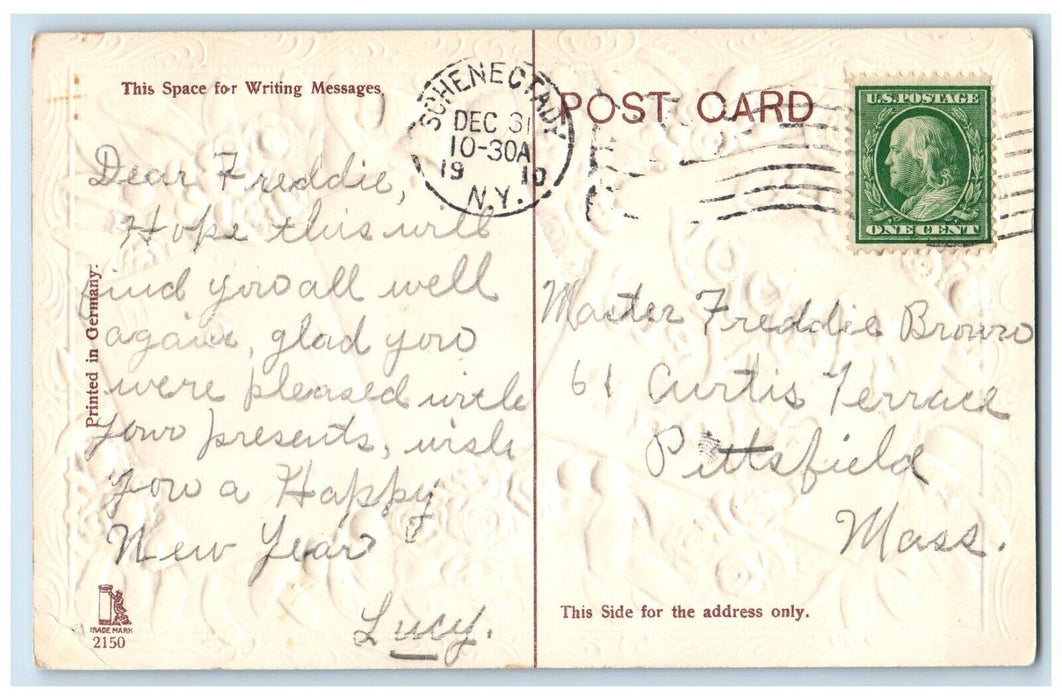 This Space for Writing Messages
Dear Freddie,
Hope this will
find you all well
again, glad you
were pleased with
your presents, wish
you a Happy
New Year
Lucy.
Printed in Germany.
TRADE MARK
2150
SCHENECTADY
DEC 31
10-30A
19 10
N.Y.
POST CARD
U.S. POSTAGE
ONE CENT
Master Freddie Brown
61 Curtis Terrace
Pittsfield
Mass.
This Side for the address only.